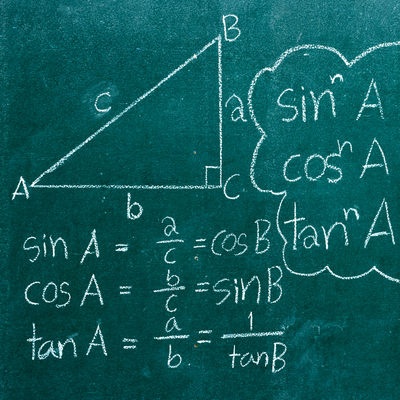 B
c
a
A
C
b
sinⁿ A
cosⁿ A
tanⁿ A
sin A = a/c = cos B
cos A = b/c = sin B
tan A = a/b = 1/tan B